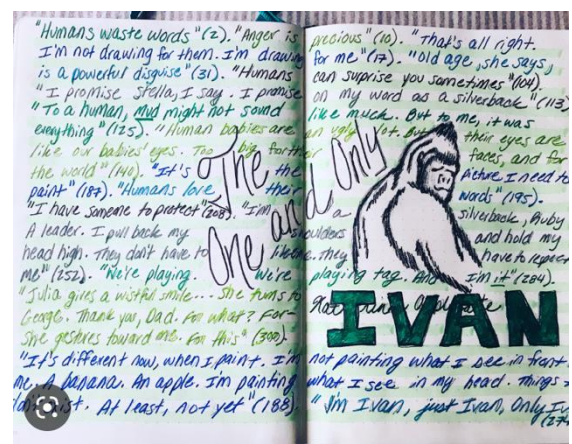 "Humans waste words" (2). "Anger is precious" (10). "That's all right.
I'm not drawing for them. I'm drawing for me" (17). "Old age, she says,
is a powerful disguise" (31). "Humans can surprise you sometimes" (104)
"I promise Stella, I say. I promise on my word as a silverback" (113)
"To a human, mud might not sound like much. But to me, it was
everything" (125). "Human babies are an ugly lot. But their eyes are
like our babies' eyes. Too big for their faces, and for
the world" (140). "It's the picture I need to
paint" (187). "Humans love their words" (195).
"I have someone to protect" (208). "I'm a silverback, Ruby
A leader. I pull back my shoulders and hold my
head high. They don't have to like me. They have to respect
me" (252). "We're playing. We're playing tag. And I'm it" (284).
"Julia gives a wistful smile... She turns to
George. Thank you, Dad. For what? For-
she gestures toward me. For this" (300).
The
One and Only
IVAN
"It's different now, when I paint. I'm not painting what I see in front
me. A banana. An apple. I'm painting what I see in my head. Things
don't exist. At least, not yet" (188). "I'm Ivan, just Ivan, Only Iv